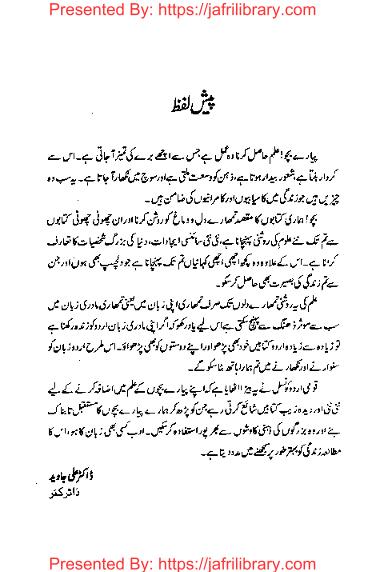 Presented By: https://jafrilibrary.com
پیش لفظ
پیارے بچو! علم حاصل کرنا وہ عمل ہے جس سے اچھے برے کی تمیز آجاتی ہے۔ اس سے
کردار بنتا ہے، شعور بیدار ہوتا ہے، ذہن کو وسعت ملتی ہے اور سوچ میں نکھار آجاتا ہے۔ یہ سب وہ
چیزیں ہیں جو زندگی میں کامیابیوں اور کامرانیوں کی ضامن ہیں۔
بچو! ہماری کتابوں کا مقصد تمھارے دل و دماغ کو روشن کرنا اور ان چھوٹی چھوٹی کتابوں
سے تم تک نئے علوم کی روشنی پہنچانا ہے، نئی نئی سائنسی ایجادات، دنیا کی بزرگ شخصیات کا تعارف
کرانا ہے۔ اس کے علاوہ وہ کچھ اچھی اچھی کہانیاں تم تک پہنچانا ہے جو دلچسپ بھی ہوں اور جن
سے تم زندگی کی بصیرت بھی حاصل کر سکو۔
علم کی یہ روشنی تمھارے دلوں تک صرف تمھاری اپنی زبان میں یعنی تمھاری مادری زبان میں
سب سے موثر ڈھنگ سے پہنچ سکتی ہے اس لیے یاد رکھو کہ اگر اپنی مادری زبان اردو کو زندہ رکھنا ہے
تو زیادہ سے زیادہ اردو کتابیں خود بھی پڑھو اور اپنے دوستوں کو بھی پڑھواؤ۔ اس طرح اردو زبان کو
سنوارنے اور نکھارنے میں تم ہمارا ہاتھ بٹا سکو گے۔
قومی اردو کونسل نے یہ بیڑا اٹھایا ہے کہ اپنے پیارے بچوں کے علم میں اضافہ کرنے کے لیے
نئی نئی اور دیدہ زیب کتابیں شائع کرتی رہے جن کو پڑھ کر ہمارے پیارے بچوں کا مستقبل تابناک
بنے اور وہ بزرگوں کی ذہنی کاوشوں سے بھرپور استفادہ کر سکیں۔ ادب کسی بھی زبان کا ہو، اس کا
مطالعہ زندگی کو بہتر طور پر سمجھنے میں مدد دیتا ہے۔
ڈاکٹر علی جاوید
ڈائرکٹر
Presented By: https://jafrilibrary.com